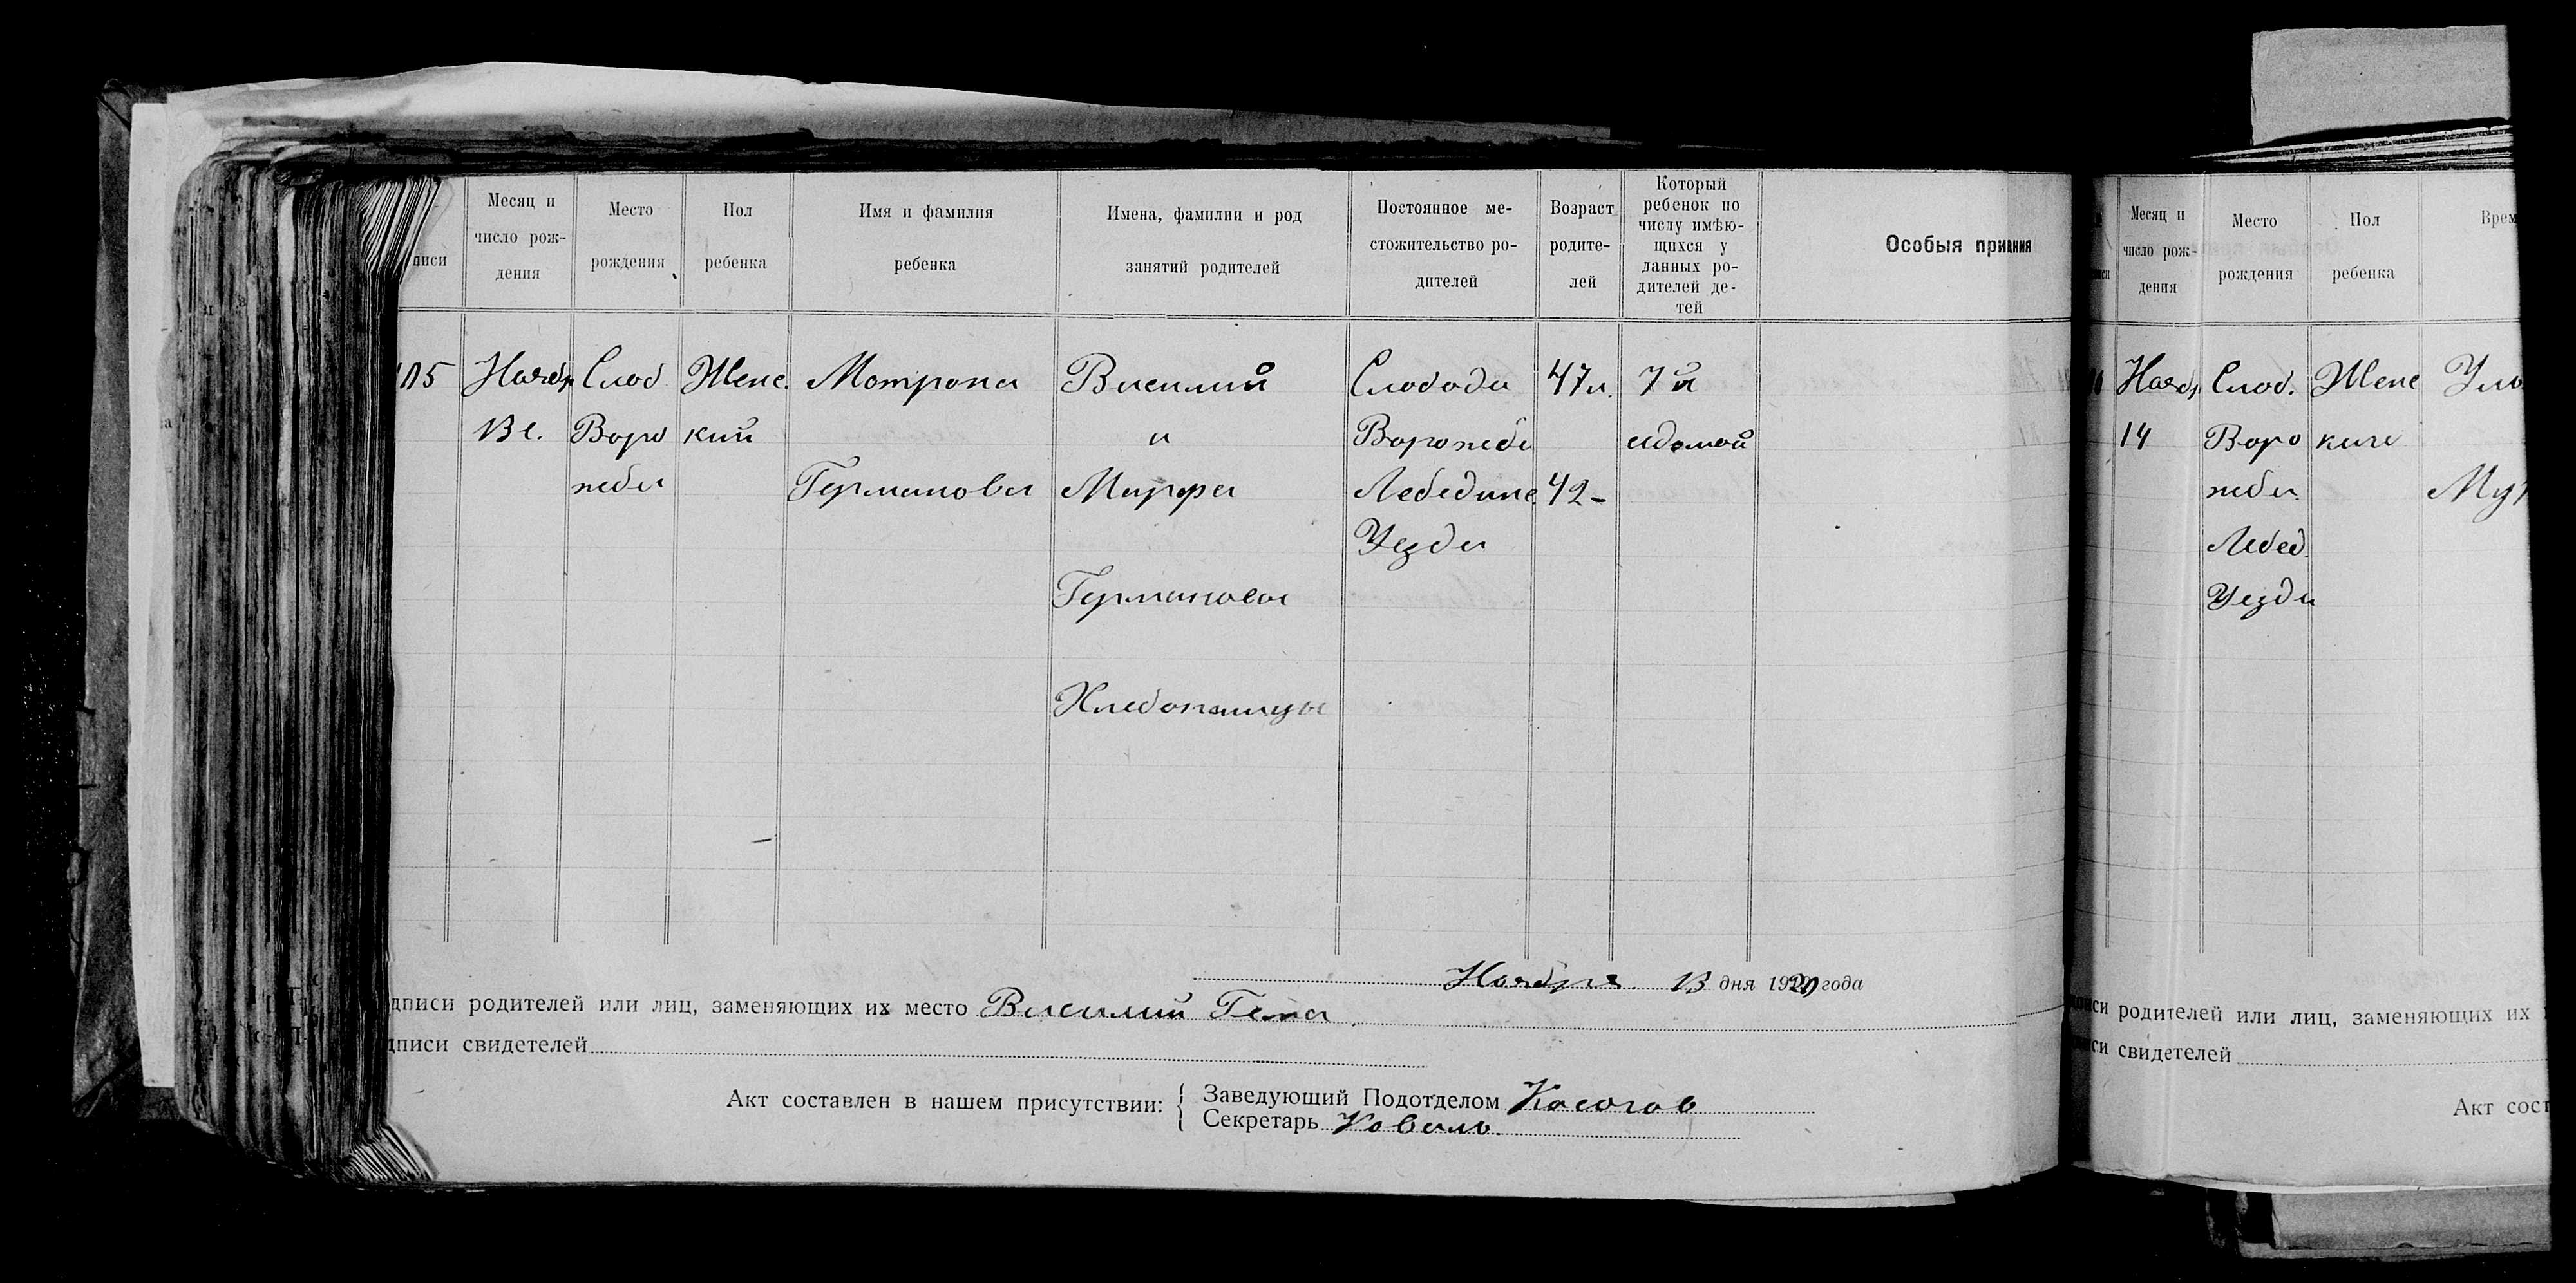 писи
Месяц и
число рож-
дения
Место
рождения
Пол
ребенка
Имя и фамилия
ребенка
Имена, фамилии и род
занятий родителей
Постоянное ме-
стожительство ро-
дителей
Возраст
родите-
лей
Который
ребенок по
числу имѣю-
щихся у
данных ро-
дителей де-
тей
Особыя
Слоб
Воро
жба
Женс.
кий
Мотрона
Германова
Василий
и
Марфа
Германовы
Хлебопашцы
Слобода
Ворожба
Лебединс
Уезда
47 л.
42 -
7й
седмой
Ноября 13 дня 1920 года
дписи родителей или лиц, заменяющих их место Василий Гема
дписи свидетелей
Акт составлен в нашем присутствии:
Заведующий Подотделом Косогов
Секретарь Коваль
Месяц и
число рож-
дения
Место
рождения
Пол
ребенка
Врем
Нояб
14
Слоб.
Воро
жба
Лебед
Уезда
Женс
кий
Уль
писи родителей или лиц, заменяющих их
си свидетелей
Акт сост